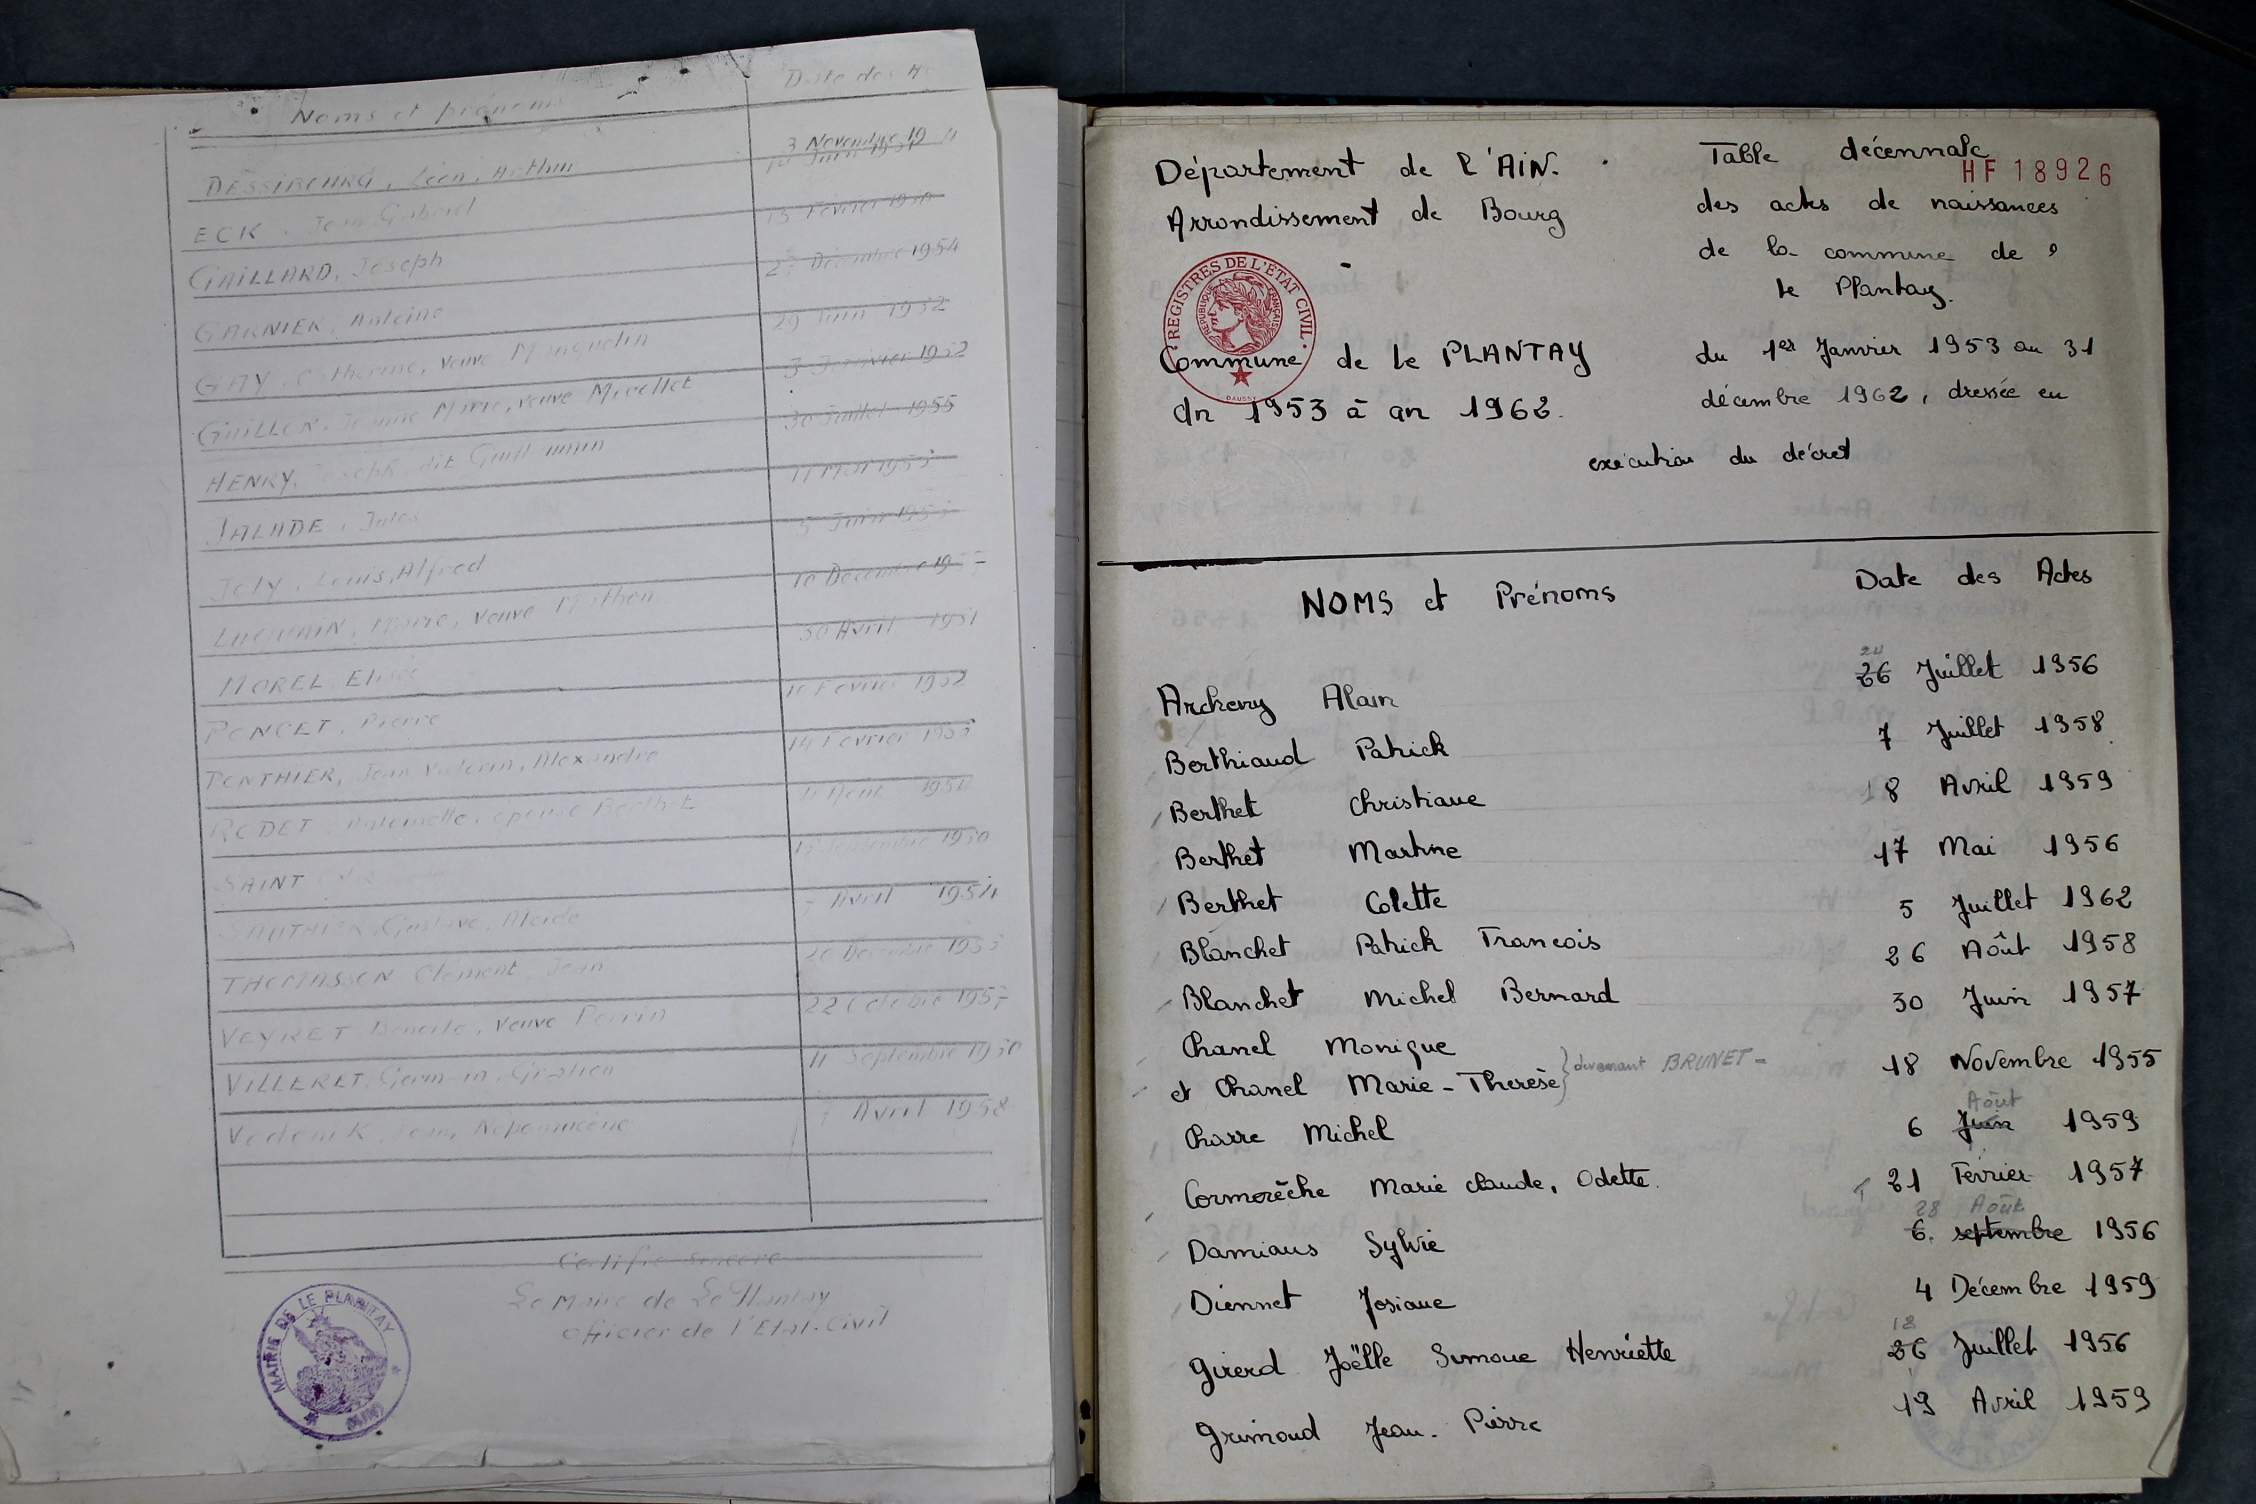 Noms et prénoms
Date des
DESSIBOURG, Léon, Arthur
3 Novembre 19
ECK, Jean Gabriel
13 Février 1950
GAILLARD, Joseph
Décembre 1954
GARNIER, Antoine
29 Juin 1952
GAY, Catherine, veuve Monguelin
3 Janvier 1952
GUILLER, Jeanne Marie, veuve Micollet
30 Juillet 1955
HENRY, Joseph, dit Guillaumin
11 Mai 1953
JALADE, Jules
5 Juin 195
JOLY, Louis, Alfred
10 Décembre 19
Marie, veuve Mathon
30 Avril 1951
MOREL Elisée
Février 1952
PONCET, Pierre
14 Février
PONTHIER, Jean Valérin, Alexandre
Août 195
RODET, Antoinette, épouse Berthet
Septembre 1950
SAINT
Avril 1954
Gustave, Alcide
20 Décembre 195
THOMASSON Clément Jean
22 Octobre 1957
VEYRET Benoite, veuve Perrin
11 Septembre 1950
VILLERET, Germain, Gratien
Avril 1958
Vodenik, Jean, Népomucène
Certifié sincère
Le Maire de Le Plantay
Officier de l'Etat-Civil
MAIRIE DE LE PLANTAY
(AIN)
Département de l'AIN.
Arrondissement de Bourg
REGISTRES DE L'ÉTAT CIVIL
RÉPUBLIQUE FRANÇAISE
DAUSSY
Commune de le PLANTAY
An 1953 à an 1962.
Table décennale
HF 18926
des actes de naissances
de la commune de
le Plantay.
du 1er Janvier 1953 au 31
décembre 1962, dressée en
exécution du décret
NOMS et Prénoms
Date des Actes
24
Archeny Alain
26 Juillet 1956
Berthiaud Patrick
7 Juillet 1958
Berthet Christiane
18 Avril 1959
Berthet Martine
17 Mai 1956
Berthet Colette
5 Juillet 1962
Blanchet Patrick Francois
26 Août 1958
Blanchet Michel Bernard
30 Juin 1957
Chanel Monique
et Chanel Marie-Therèse } devenant BRUNET-
18 Novembre 1955
Août
Charre Michel
6 Juin 1959
Cormorèche Marie claude, Odette.
21 Février 1957
28 Août
Damians Sylvie
6. septembre 1956
Diennet Josiane
4 Décembre 1959
18
Girerd Joëlle Simone Henriette
26 Juillet 1956
Grimaud Jean-Pierre
19 Avril 1959